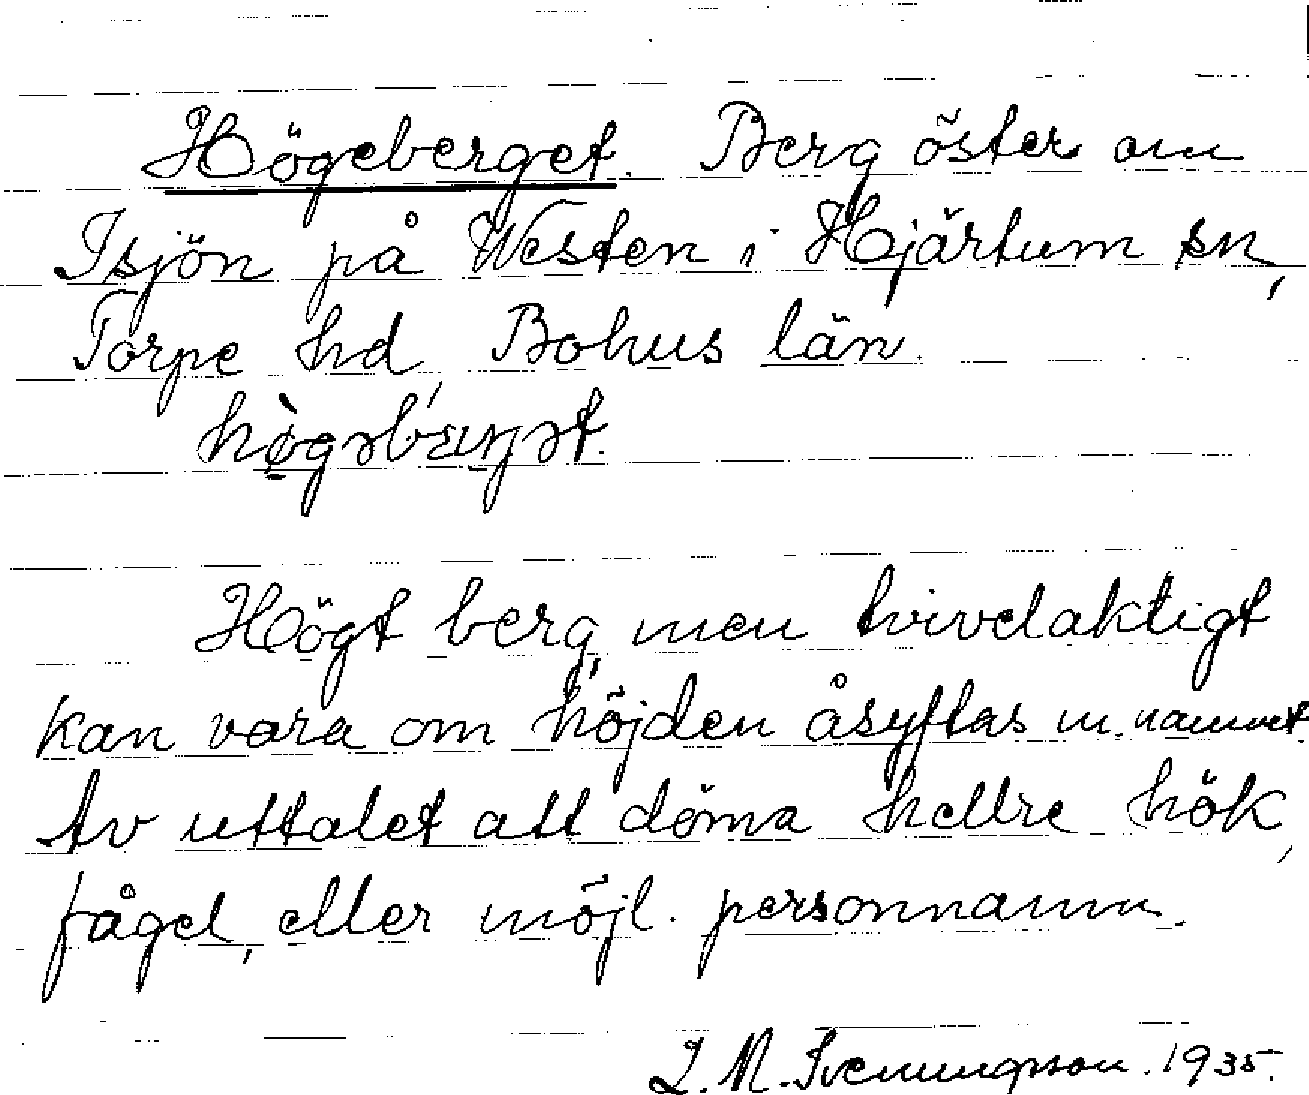 Högeberget. Berg öster om
Isjön på Westen i Hjärtum sn,
Torpe hd, Bohus län.
Högt berg, men tvivelaktigt
kan vara om höjden åsyftas m. namnet.
Av uttalet att döma hellre hök,
fågel, eller möjl. personnamn.
L. M. Svenungsson. 1935.